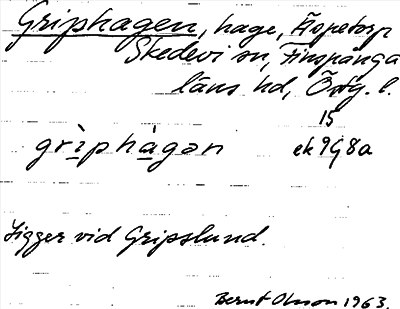 Griphagen, hage, Äspetorp
Skedevi sn, Finspånga
läns hd, Östg. l.
15
grìphàgən ek 9G8a
Ligger vid Gripslund.
Bernt Olsson 1963.